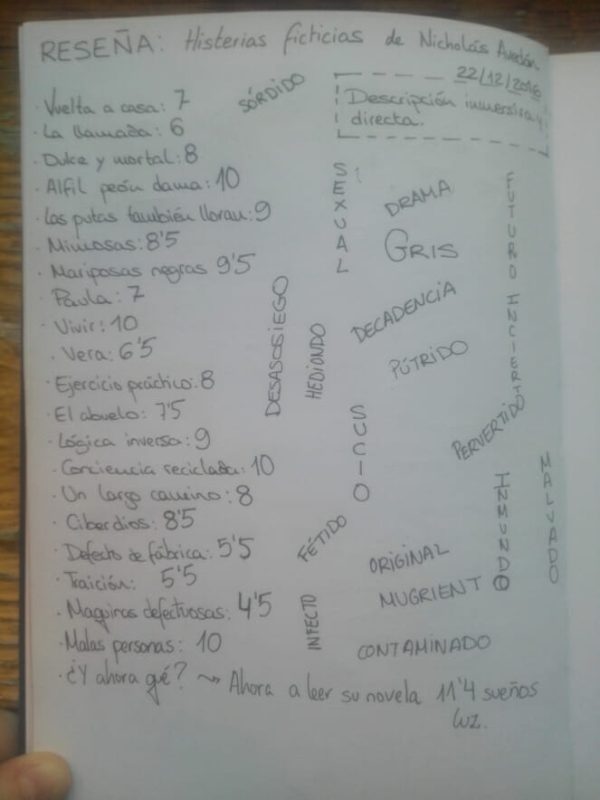 RESEÑA: Histerias ficticias de Nicholas Avedon
22/12/2016
SÓRDIDO
Descripción inmersiva y
directa.
· Vuelta a casa: 7
· La llamada: 6
· Dulce y mortal: 8
· Alfil peón dama: 10
· Las putas también lloran: 9
· Mimosas: 8'5
· Mariposas negras 9'5
· Paula: 7
· Vivir: 10
· Vera: 6'5
· Ejercicio práctico: 8
· El abuelo: 7'5
· Lógica inversa: 9
· Conciencia reciclada: 10
· Un largo camino: 8
· Ciberdios: 8'5
· Defecto de fábrica: 5'5
· Traición: 5'5
· Maquinas defectuosas: 4'5
· Malas personas: 10
· ¿Y ahora qué? ⤳ Ahora a leer su novela 11'4 sueños
luz.
SEXUAL
DRAMA
GRIS
FUTURO INCIERTO
DESASOSIEGO
HEDIONDO
DECADENCIA
PÚTRIDO
SUCIO
PERVERTIDO
MALVADO
INMUNDO
FÉTIDO
ORIGINAL
MUGRIENTO
INFECTO
CONTAMINADO